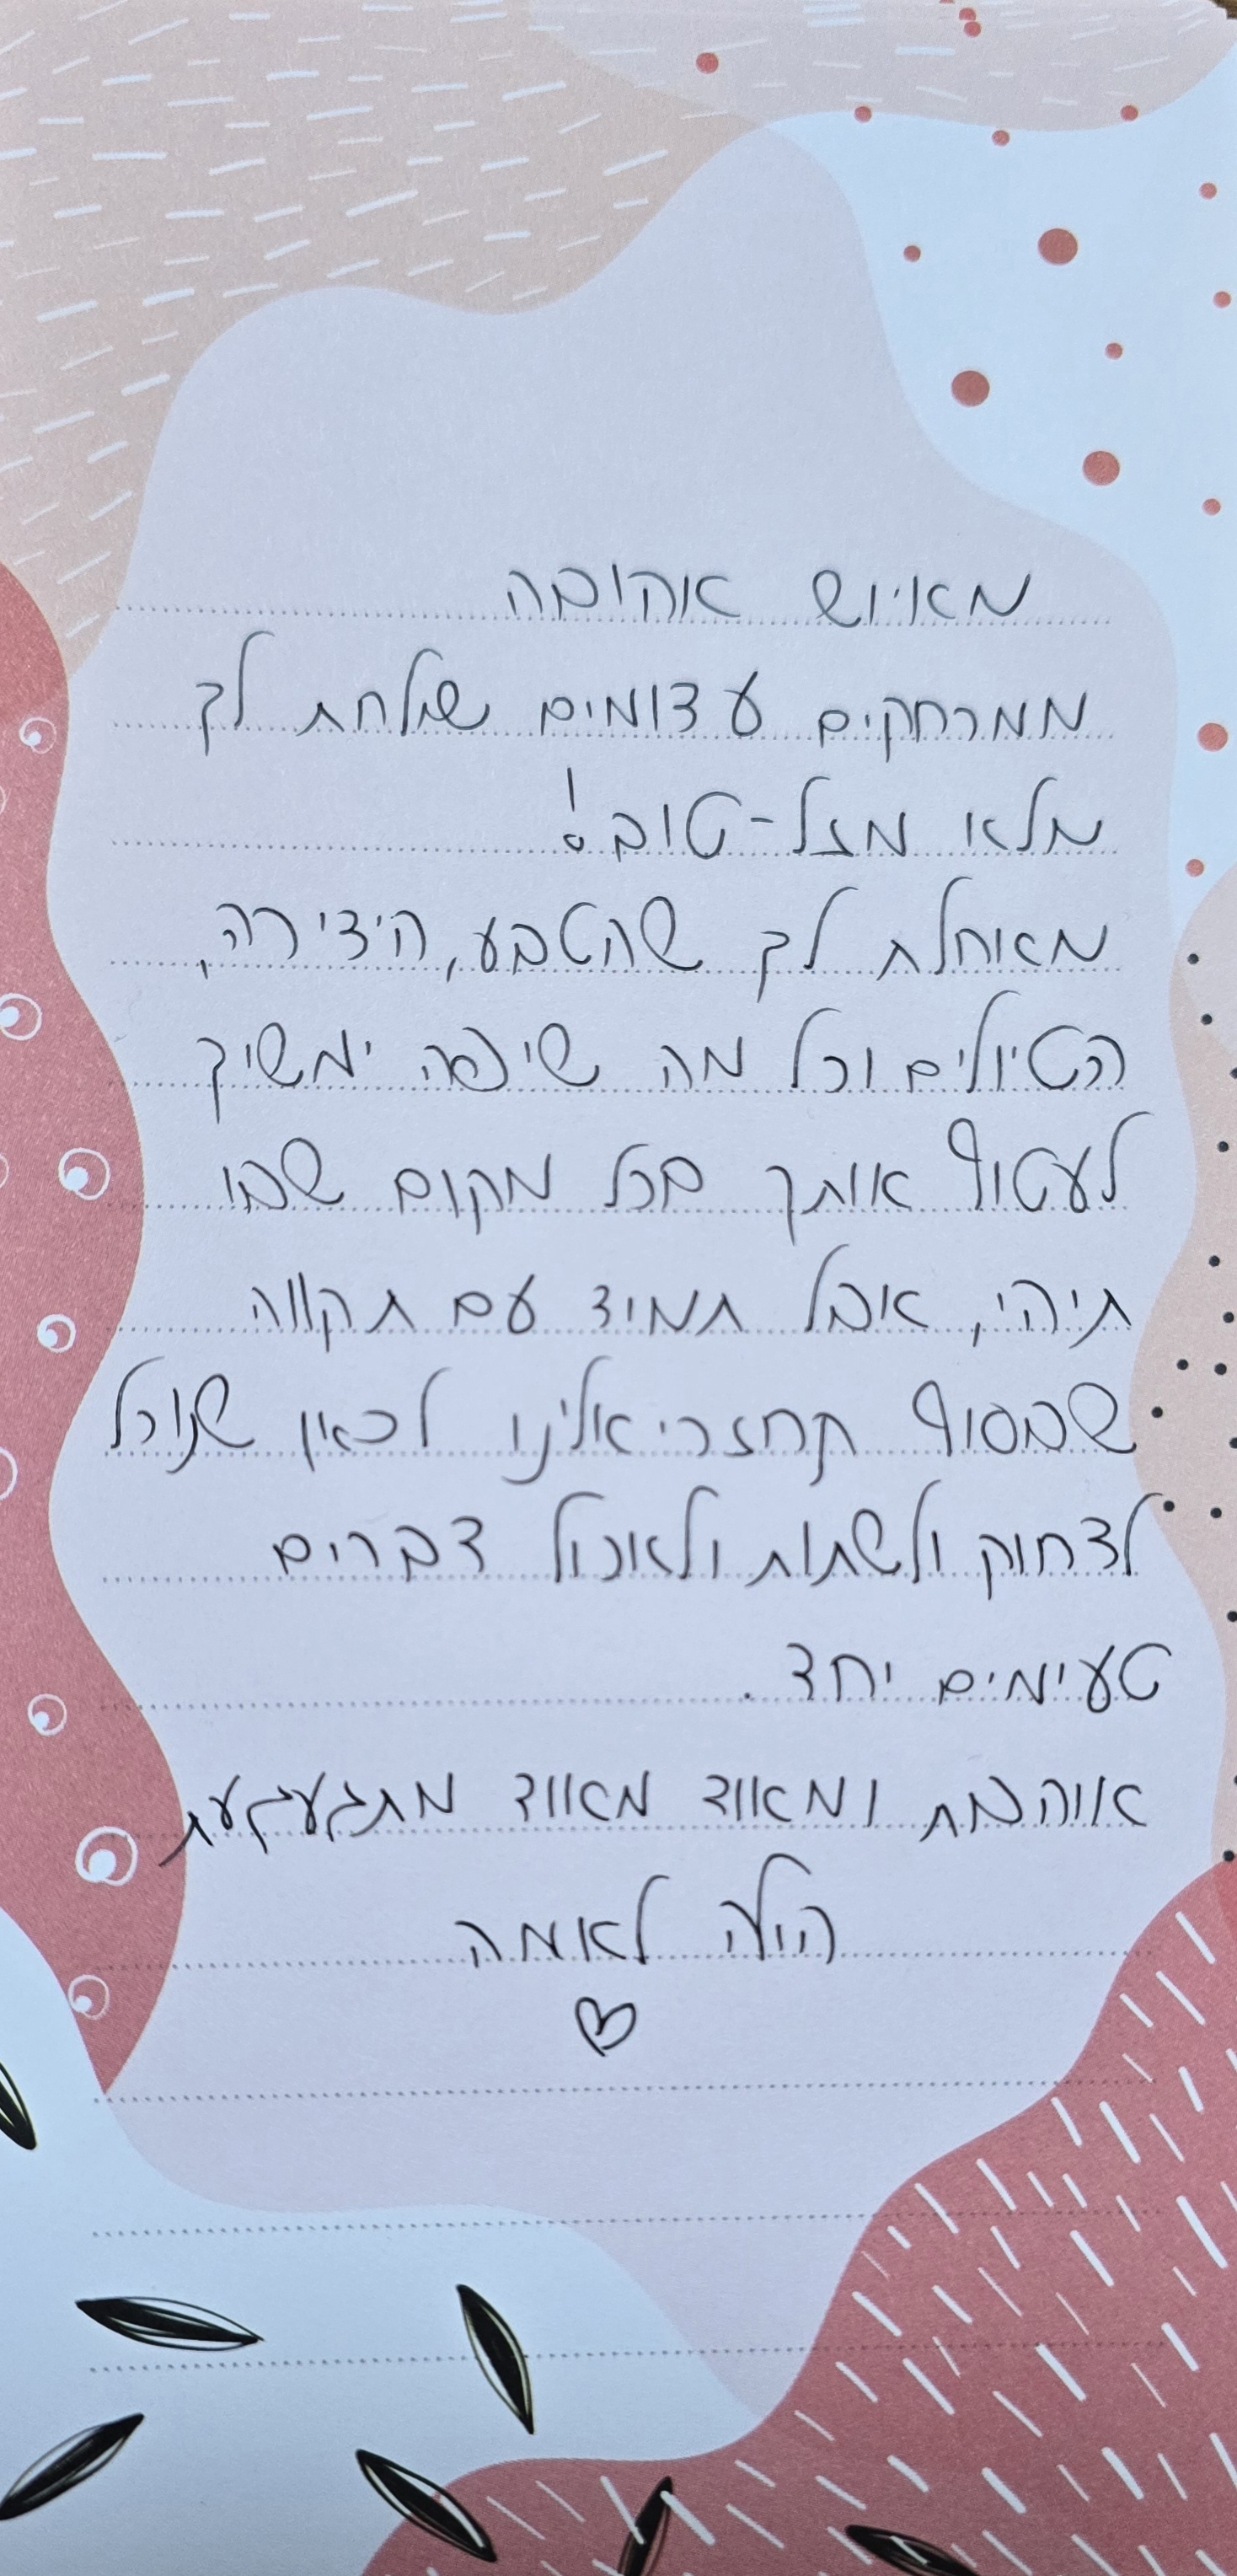 מאיוש אהובה
ממרחקים עצומים שולחת לך
מלא מזל-טוב!
מאחלת לך שהטבע, היצירה,
הטיולים וכל מה שיפה ימשיך
לעטוף אותך בכל מקום שבו
תיהי, אבל תמיד עם תקווה
שבסוף תחזרי אלינו לכאן שנוכל
לצחוק ולשתות ולאכול דברים
טעימים יחד.
אוהבת ומאוד מאוד מתגעגעת
הילה לאמה